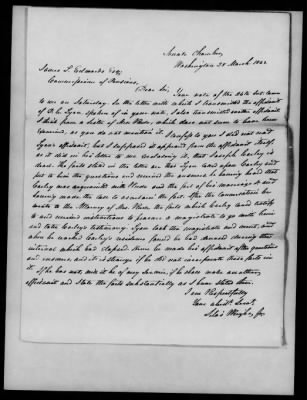 Senate Chamber,
Washington 28 March 1842
James L. Edwards Esq;
Commissioner of Pensions,
Dear Sir, Your note of the 26th Inst. came
to me on Saturday. In the letter with which I transmitted the affidavit
of D. L. Lyon spoken of in your note, I also transmitted another affidavit
I think from a sister of Mrs. , which does not seem to have been
examined, as you do not mention it. I confess to you I did not read
Lyon's affidavit, but I supposed it appeared from the affidavit itself,
as it did in his letter to me enclosing it, that Joseph Earley is
dead. The facts stated in the letter are that Lyon called upon Earley and
put to him the questions and received the answers he having heard that
Earley was acquainted with and the fact of his marriage and
having made the call to ascertain the fact. After the conversation he
wrote to the Attorney of Mrs. the facts which Earley could testify
to and received instructions to procure a magistrate to go with him
and take Earley's testimony. Lyon took the magistrate and went and
when he reached Earley's residence found he had deceased during the
interval which had elapsed since he made his affidavit after questions
and answers, and it is strange if he did not incorporate these facts in
it. If he has not, will it be of any service, if he shall make another
affidavit and state the facts substantially as I have stated them.
I am Respectfully
Your obedt. Servt.
Silas Wright, Jr.